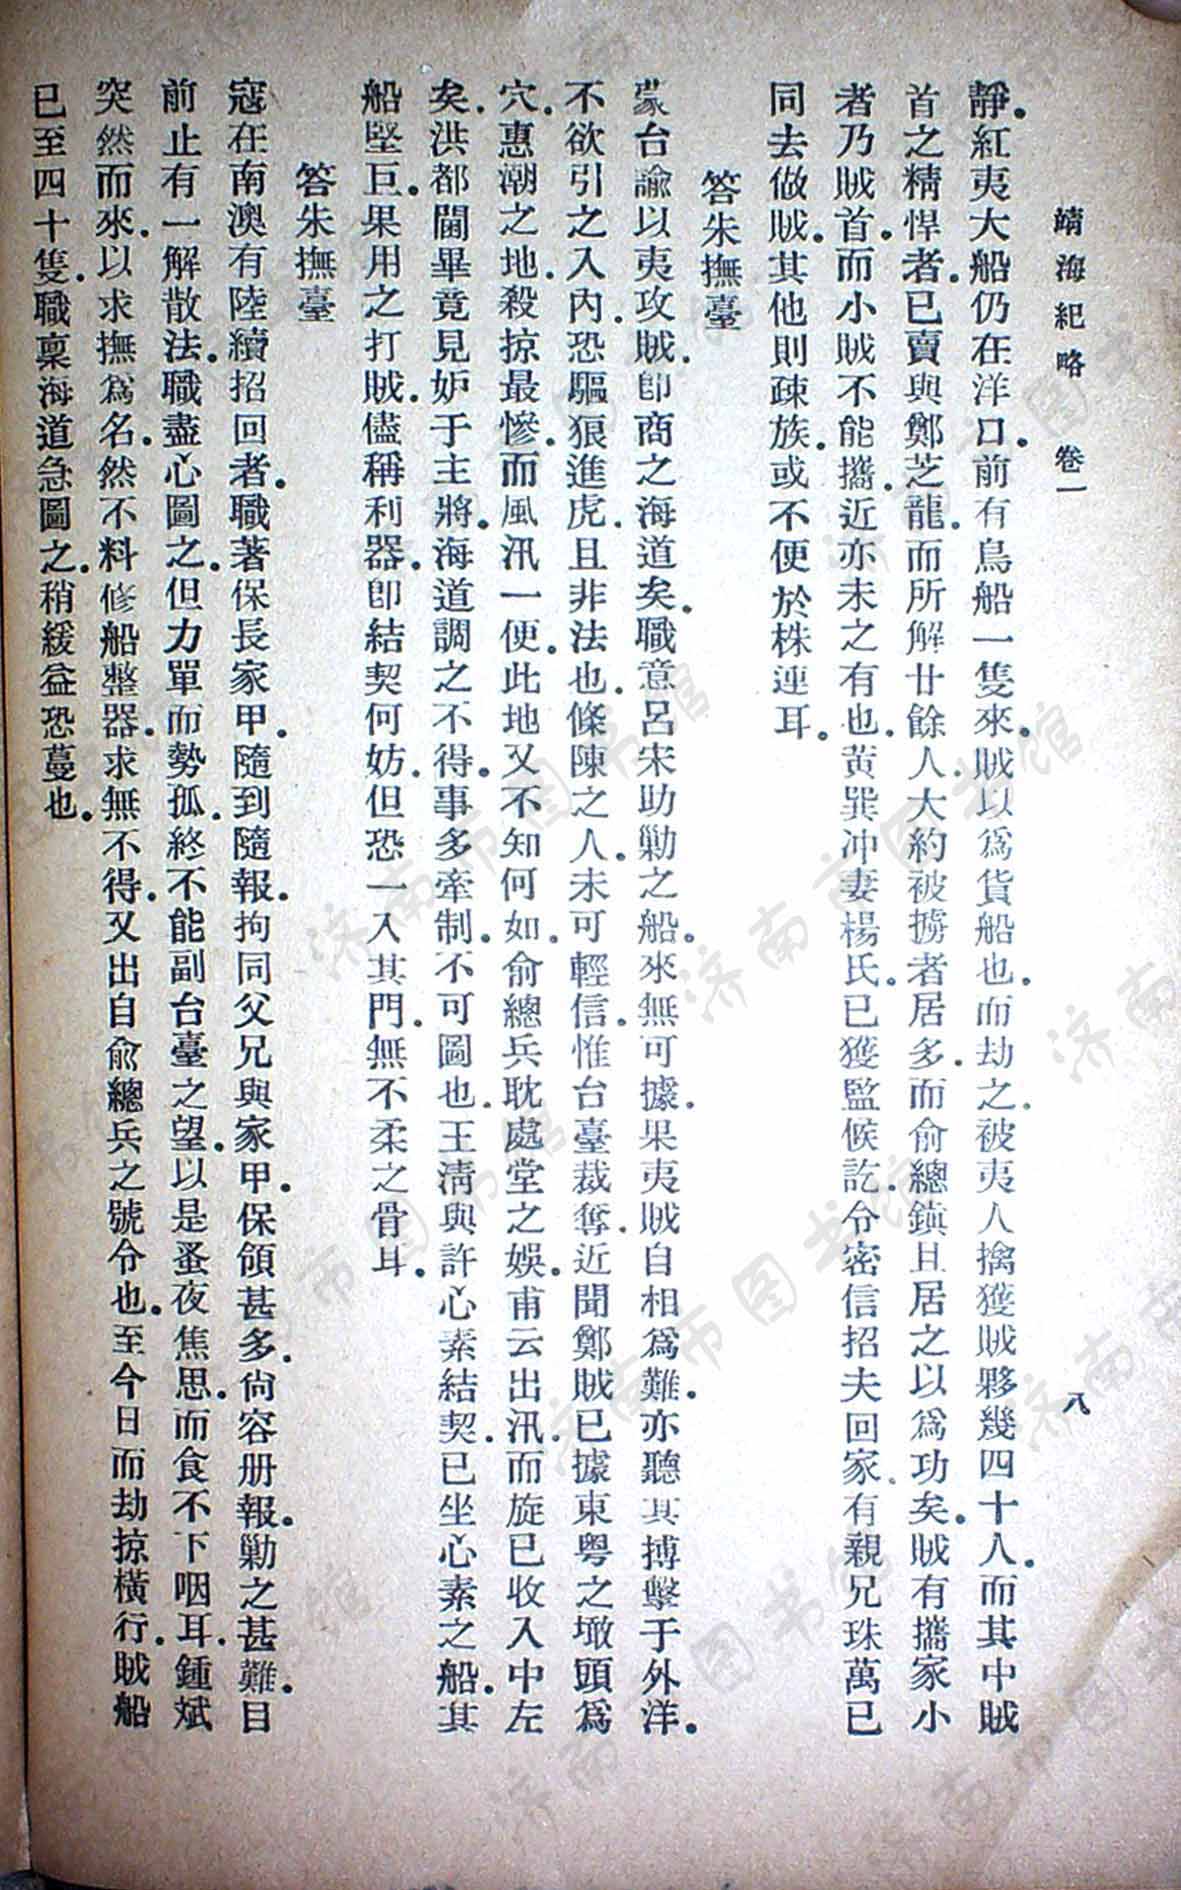 靖海紀略　卷一　八
靜。紅夷大船仍在洋口。前有鳥船一隻來。賊以爲貨船也。而劫之。被夷人擒獲賊夥幾四十人。而其中賊
首之精悍者。已賣與鄭芝龍。而所解廿餘人。大約被擄者居多。而俞總鎮且居之以爲功矣。賊有攜家小
者乃賊首。而小賊不能攜。近亦未之有也。黃巽冲妻楊氏。已獲監候訖。令密信招夫回家。有親兄珠萬已
同去做賊。其他則疎族。或不便於株連耳。
答朱撫臺
蒙台諭以夷攻賊。卽商之海道矣。職意呂宋助勦之船。來無可據。果夷賊自相爲難。亦聽其搏擊于外洋。
不欲引之入內。恐驅狼進虎。且非法也。條陳之人。未可輕信。惟台臺裁奪。近聞鄭賊已據東粤之墩頭爲
穴。惠潮之地。殺掠最慘。而風汛一便。此地又不知何如。俞總兵耽處堂之娛。甫云出汛。而旋已收入中左
矣。洪都閫畢竟見妒于主將。海道調之不得。事多牽制。不可圖也。王淸與許心素結契。已坐心素之船。其
船堅巨。果用之打賊。儘稱利器。卽結契何妨。但恐一入其門。無不柔之骨耳。
答朱撫臺
寇在南澳有陸續招回者。職著保長家甲。隨到隨報。拘同父兄與家甲。保領甚多。尙容册報。勦之甚難。目
前止有一解散法。職盡心圖之。但力單而勢孤。終不能副台臺之望。以是蚤夜焦思。而食不下咽耳。鍾斌
突然而來。以求撫爲名。然不料修船整器。求無不得。又出自俞總兵之號令也。至今日而劫掠橫行。賊船
已至四十隻。職稟海道急圖之。稍緩益恐蔓也。
济南市图书馆